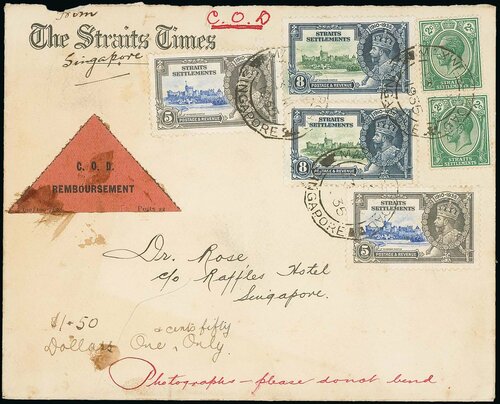 From
C.O.D
The Straits Times
Singapore
STRAITS SETTLEMENTS
5
POSTAGE & REVENUE
STRAITS SETTLEMENTS
8
POSTAGE & REVENUE
STRAITS SETTLEMENTS
8
POSTAGE & REVENUE
STRAITS SETTLEMENTS
STRAITS SETTLEMENTS
STRAITS SETTLEMENTS
5
POSTAGE & REVENUE
SINGAPORE
SINGAPORE
C. O. D.
REMBOURSEMENT
Dr. Rose
c/o Raffles Hotel
Singapore.
$1-50
& cents fifty
Dollars One, Only
Photographs - please donot bend.